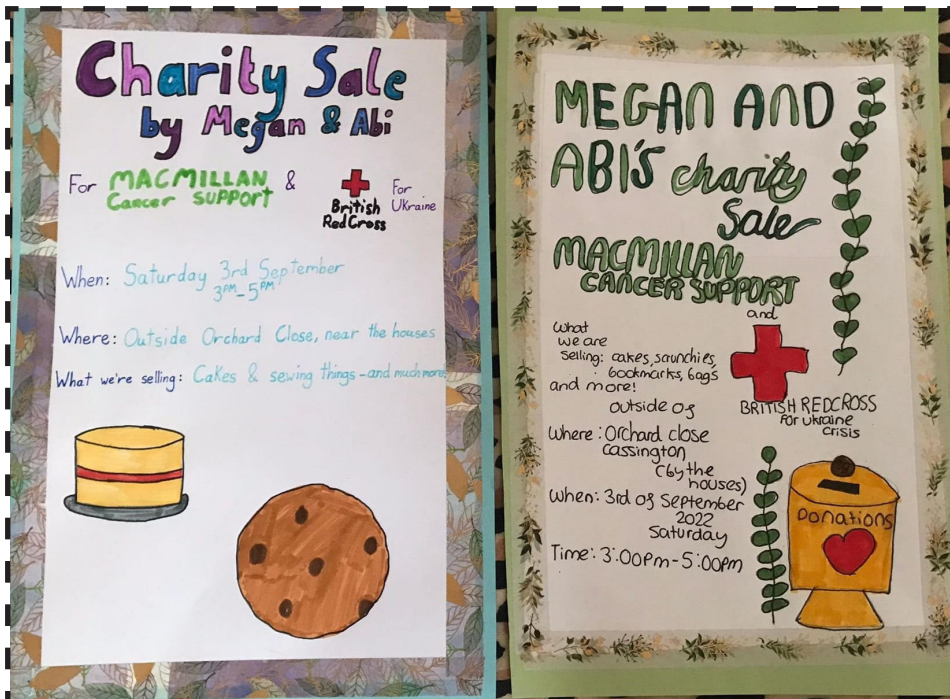 Charity Sale
by Megan & Abi
For MACMILLAN
Cancer SUPPORT
&
British
Red Cross
For
Ukraine
When: Saturday 3rd September
3PM-5PM
Where: Outside Orchard Close, near the houses
What we're selling: Cakes & sewing things -and much more!
MEGAN AND
ABI'S charity
Sale
MACMILLAN
CANCER SUPPORT
and
BRITISH REDCROSS
For Ukraine
crisis
What
we are
selling: cakes, scrunchies,
bookmarks, bags
and more!
outside of
Where: Orchard close
cassington
(by the
houses)
When: 3rd of September
2022
Saturday
Time: 3:00pm-5:00pm
Donations